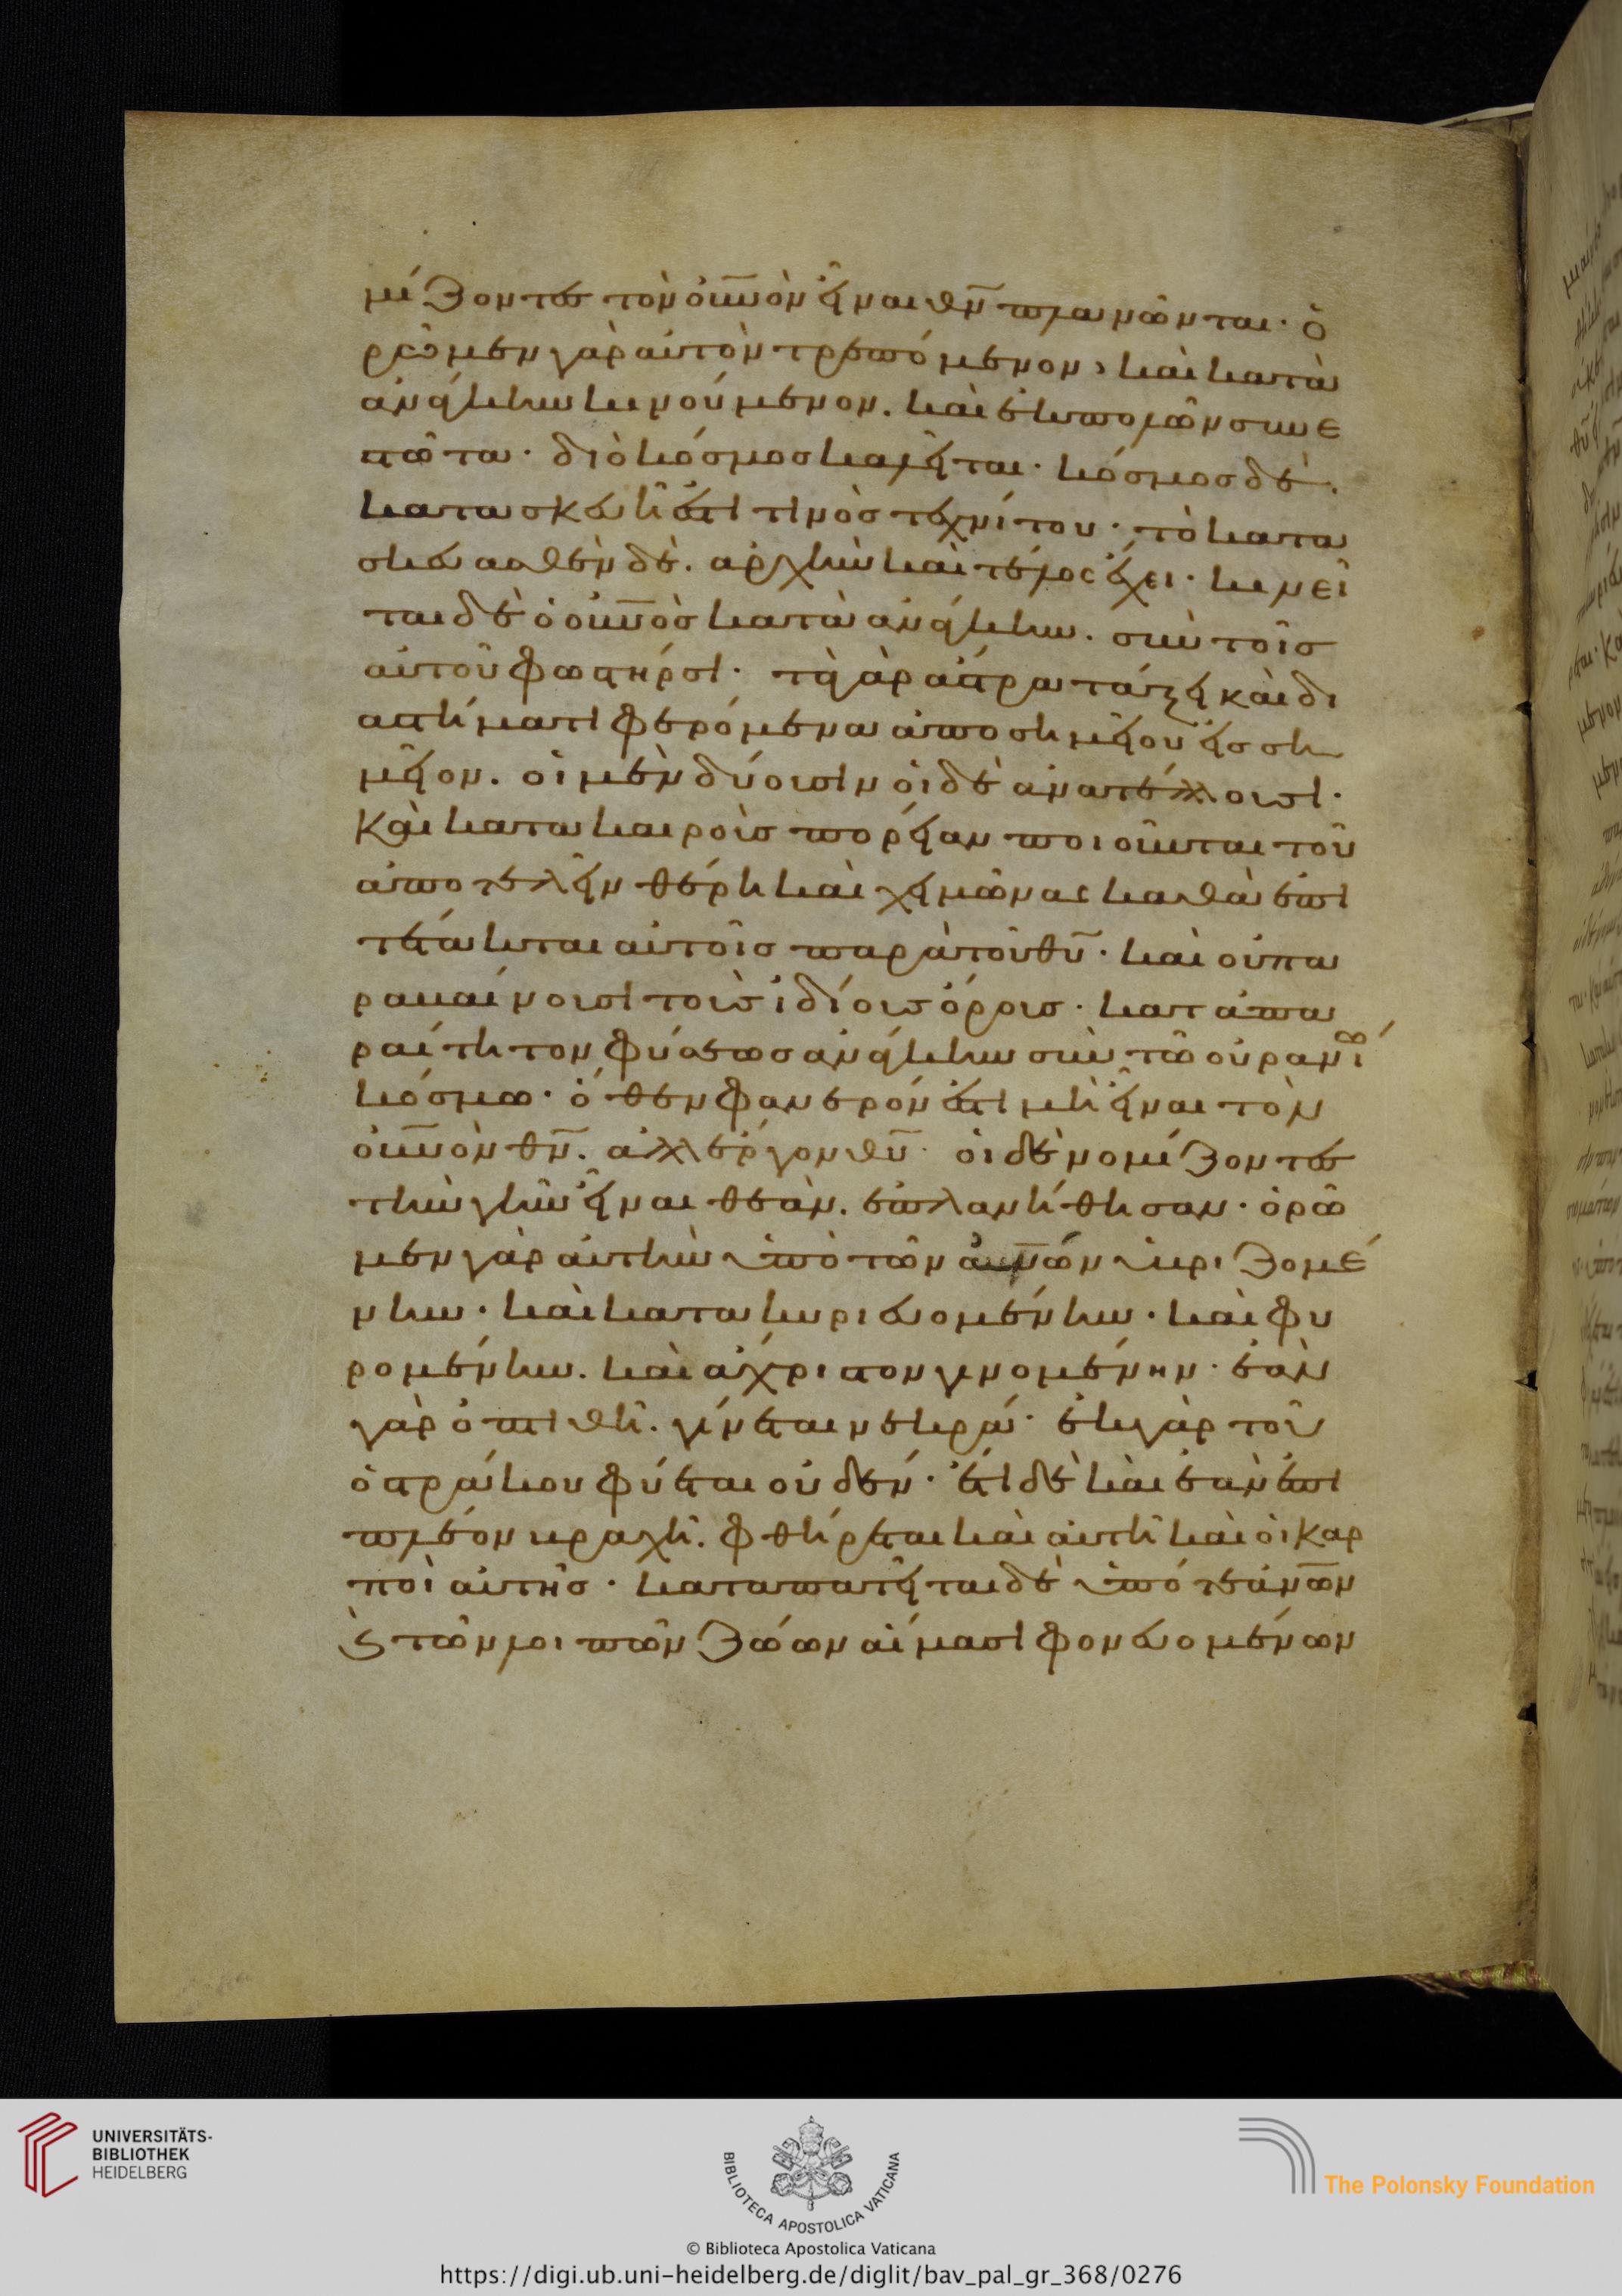 μίζοντες τὸν οὐνὸν εἶναι θν πλανῶνται· ὁ
ρῶμεν γὰρ αὐτὸν τρεπόμενον, καὶ κατὰ
ἀνάγκην κινούμενον. καὶ ἐκ πολλῶν συνε
στῶτα· διὸ κόσμος καλεῖται· κόσμος δὲ.
κατασκευή ἐστι τινὸς τεχνίτου· τὸ κατα
σκευασθὲν δὲ. ἀρχὴν καὶ τέλος ἔχει· κινεῖ
ται δὲ ὁ οὐνὸς κατὰ ἀνάγκην. σὺν τοῖς
αὐτοῦ φωστῆρσι· τὰ γὰρ ἄστρα τάξει καὶ δι
αστήματι φερόμενα ἀπὸ σημείου εἰς ση
μεῖον. οἱ μὲν δύουσιν οἱ δὲ ἀνατέλλουσι·
Καὶ κατὰ καιροὺς πορείαν ποιοῦνται τοῦ
ἀποτελεῖν θέρη καὶ χειμῶνας καθὰ ἐπι
τέτακται αὐτοῖς παρὰ τοῦ θυ· καὶ οὐ πα
ραβαίνουσι τοὺς ἰδίους ὅρους· κατὰ ἀπα
ραίτητον φύσεως ἀνάγκην σὺν τῷ οὐρανίῳ
κόσμῳ· ὅθεν φανερόν ἐστι μὴ εἶναι τὸν
οὐνὸν θν. ἀλλ' ἔργον θυ· οἱ δὲ νομίζοντες
τὴν γῆν εἶναι θεὰν. ἐπλανήθησαν· ὁρῶ
μεν γὰρ αὐτὴν ὑπὸ τῶν ἀνῶν ὑβριζομέ
νην· καὶ κατακυριευομένην· καὶ φυ
ρομένην. καὶ ἄχριστον γινομένην· ἐὰν
γὰρ ὀπτηθῇ. γίνεται νεκρά· ἐκ γὰρ τοῦ
ὀστράκου φύεται οὐδέν· ἔτι δὲ καὶ ἐὰν ἐπι
πλέον βραχῇ. φθείρεται καὶ αὐτὴ καὶ οἱ καρ
ποὶ αὐτῆς· καταπατεῖται δὲ ὑπό τε ἀνῶν
καὶ τῶν λοιπῶν ζώων αἵμασι φονευομένων
UNIVERSITÄTS-
BIBLIOTHEK
HEIDELBERG
BIBLIOTECA APOSTOLICA VATICANA
The Polonsky Foundation
© Biblioteca Apostolica Vaticana
https://digi.ub.uni-heidelberg.de/diglit/bav_pal_gr_368/0276